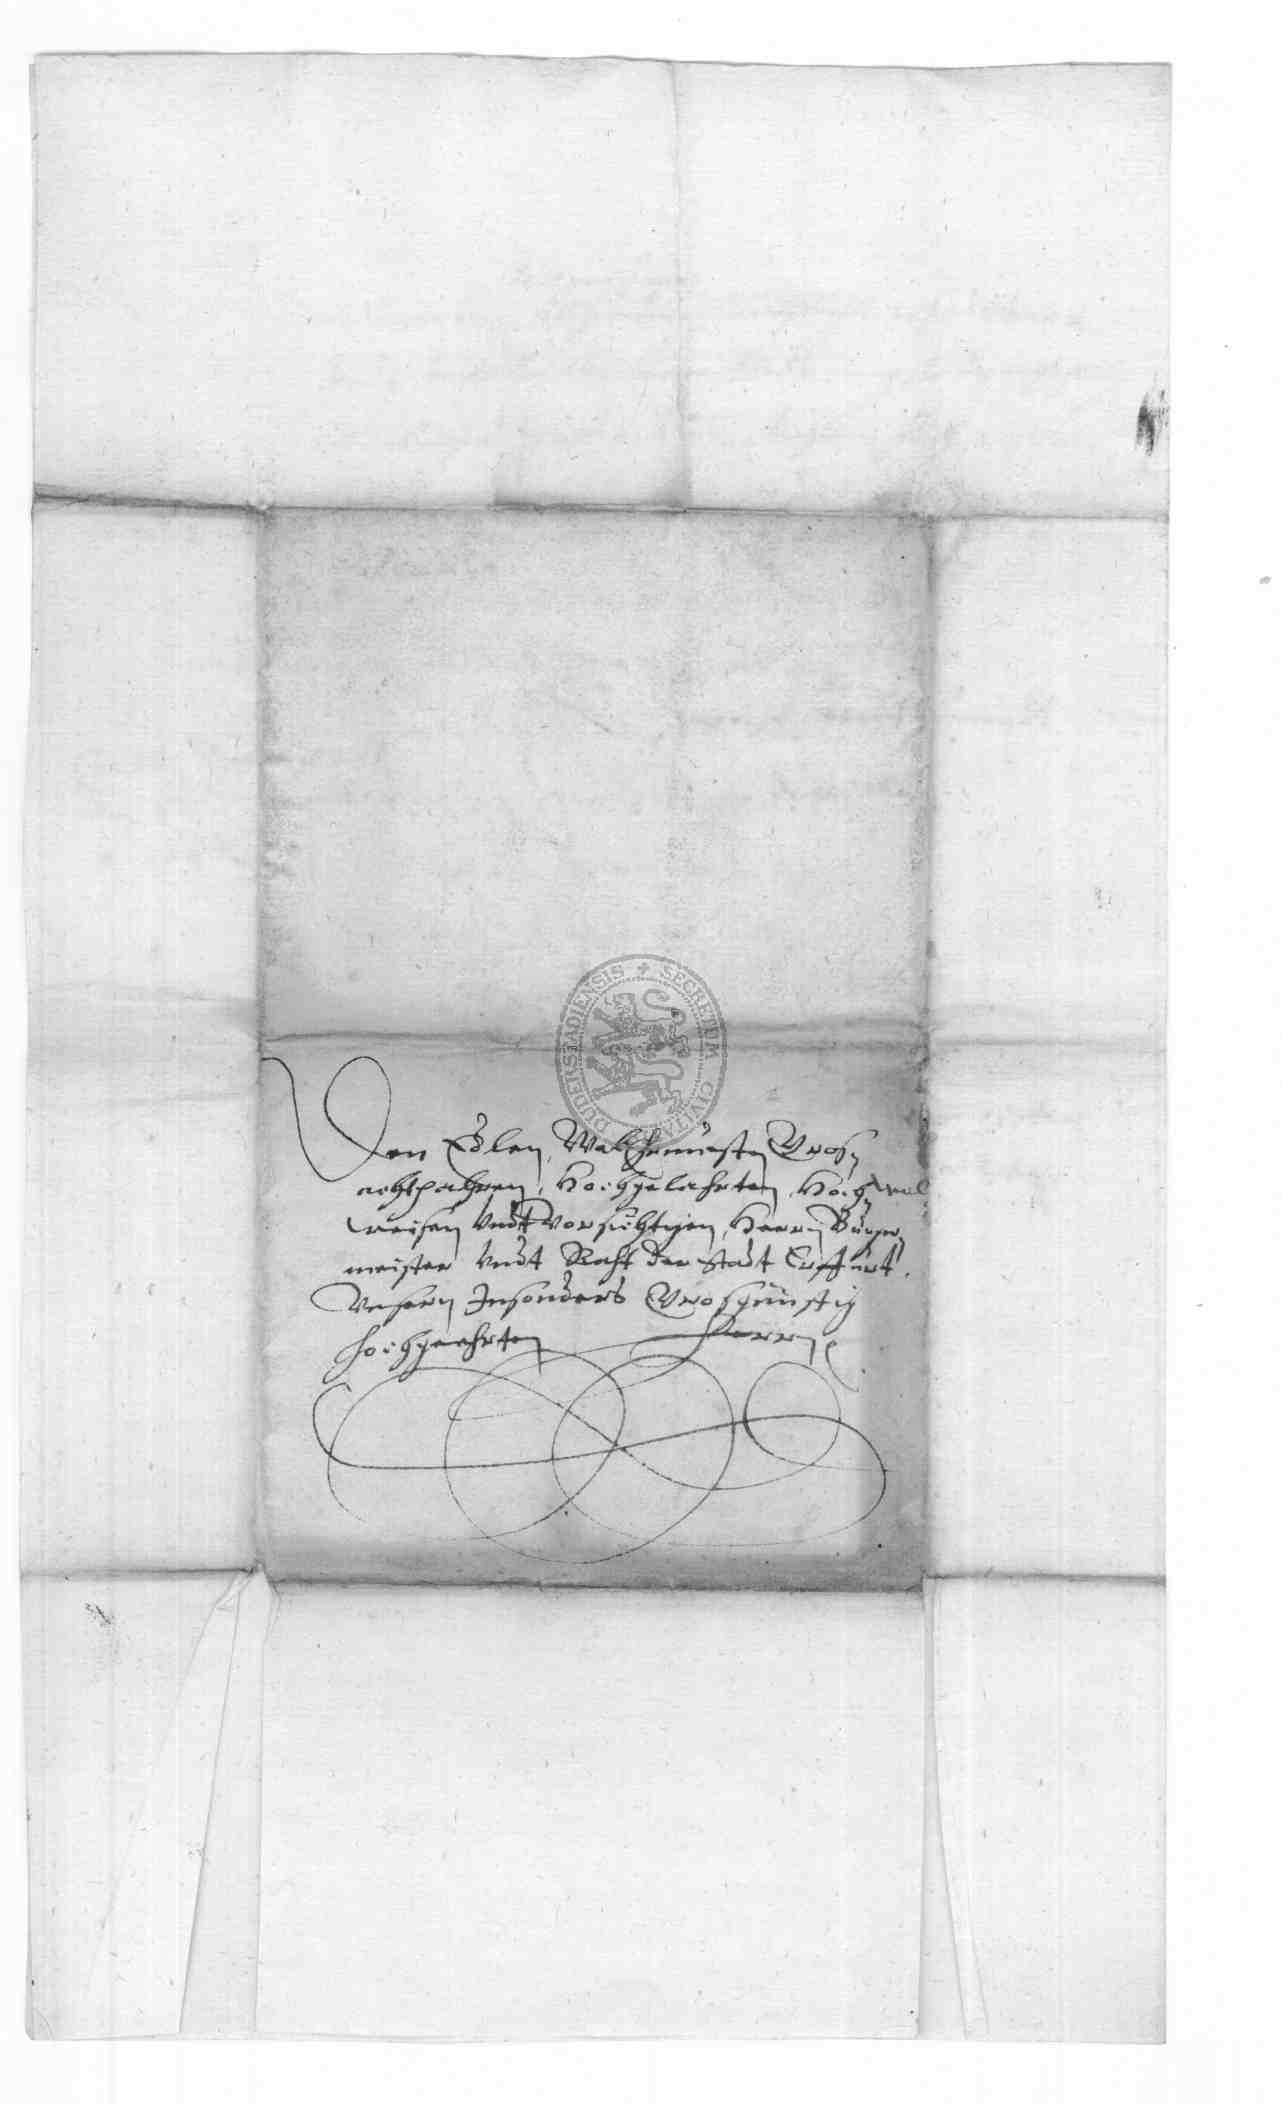 SECRETUM CIVITA DUDERSTADIENSIS
Den Edlen, Wolehrnuesten Gros
achtpahren, Hochgelahrten, Hoch Wol
weisen vndt Vorsichtigen, Herrn Bürger
meister vndt Raht der Stadt Erffurt,
Vnsern Insonders Grosgünstig
hochgeehrten Herrn